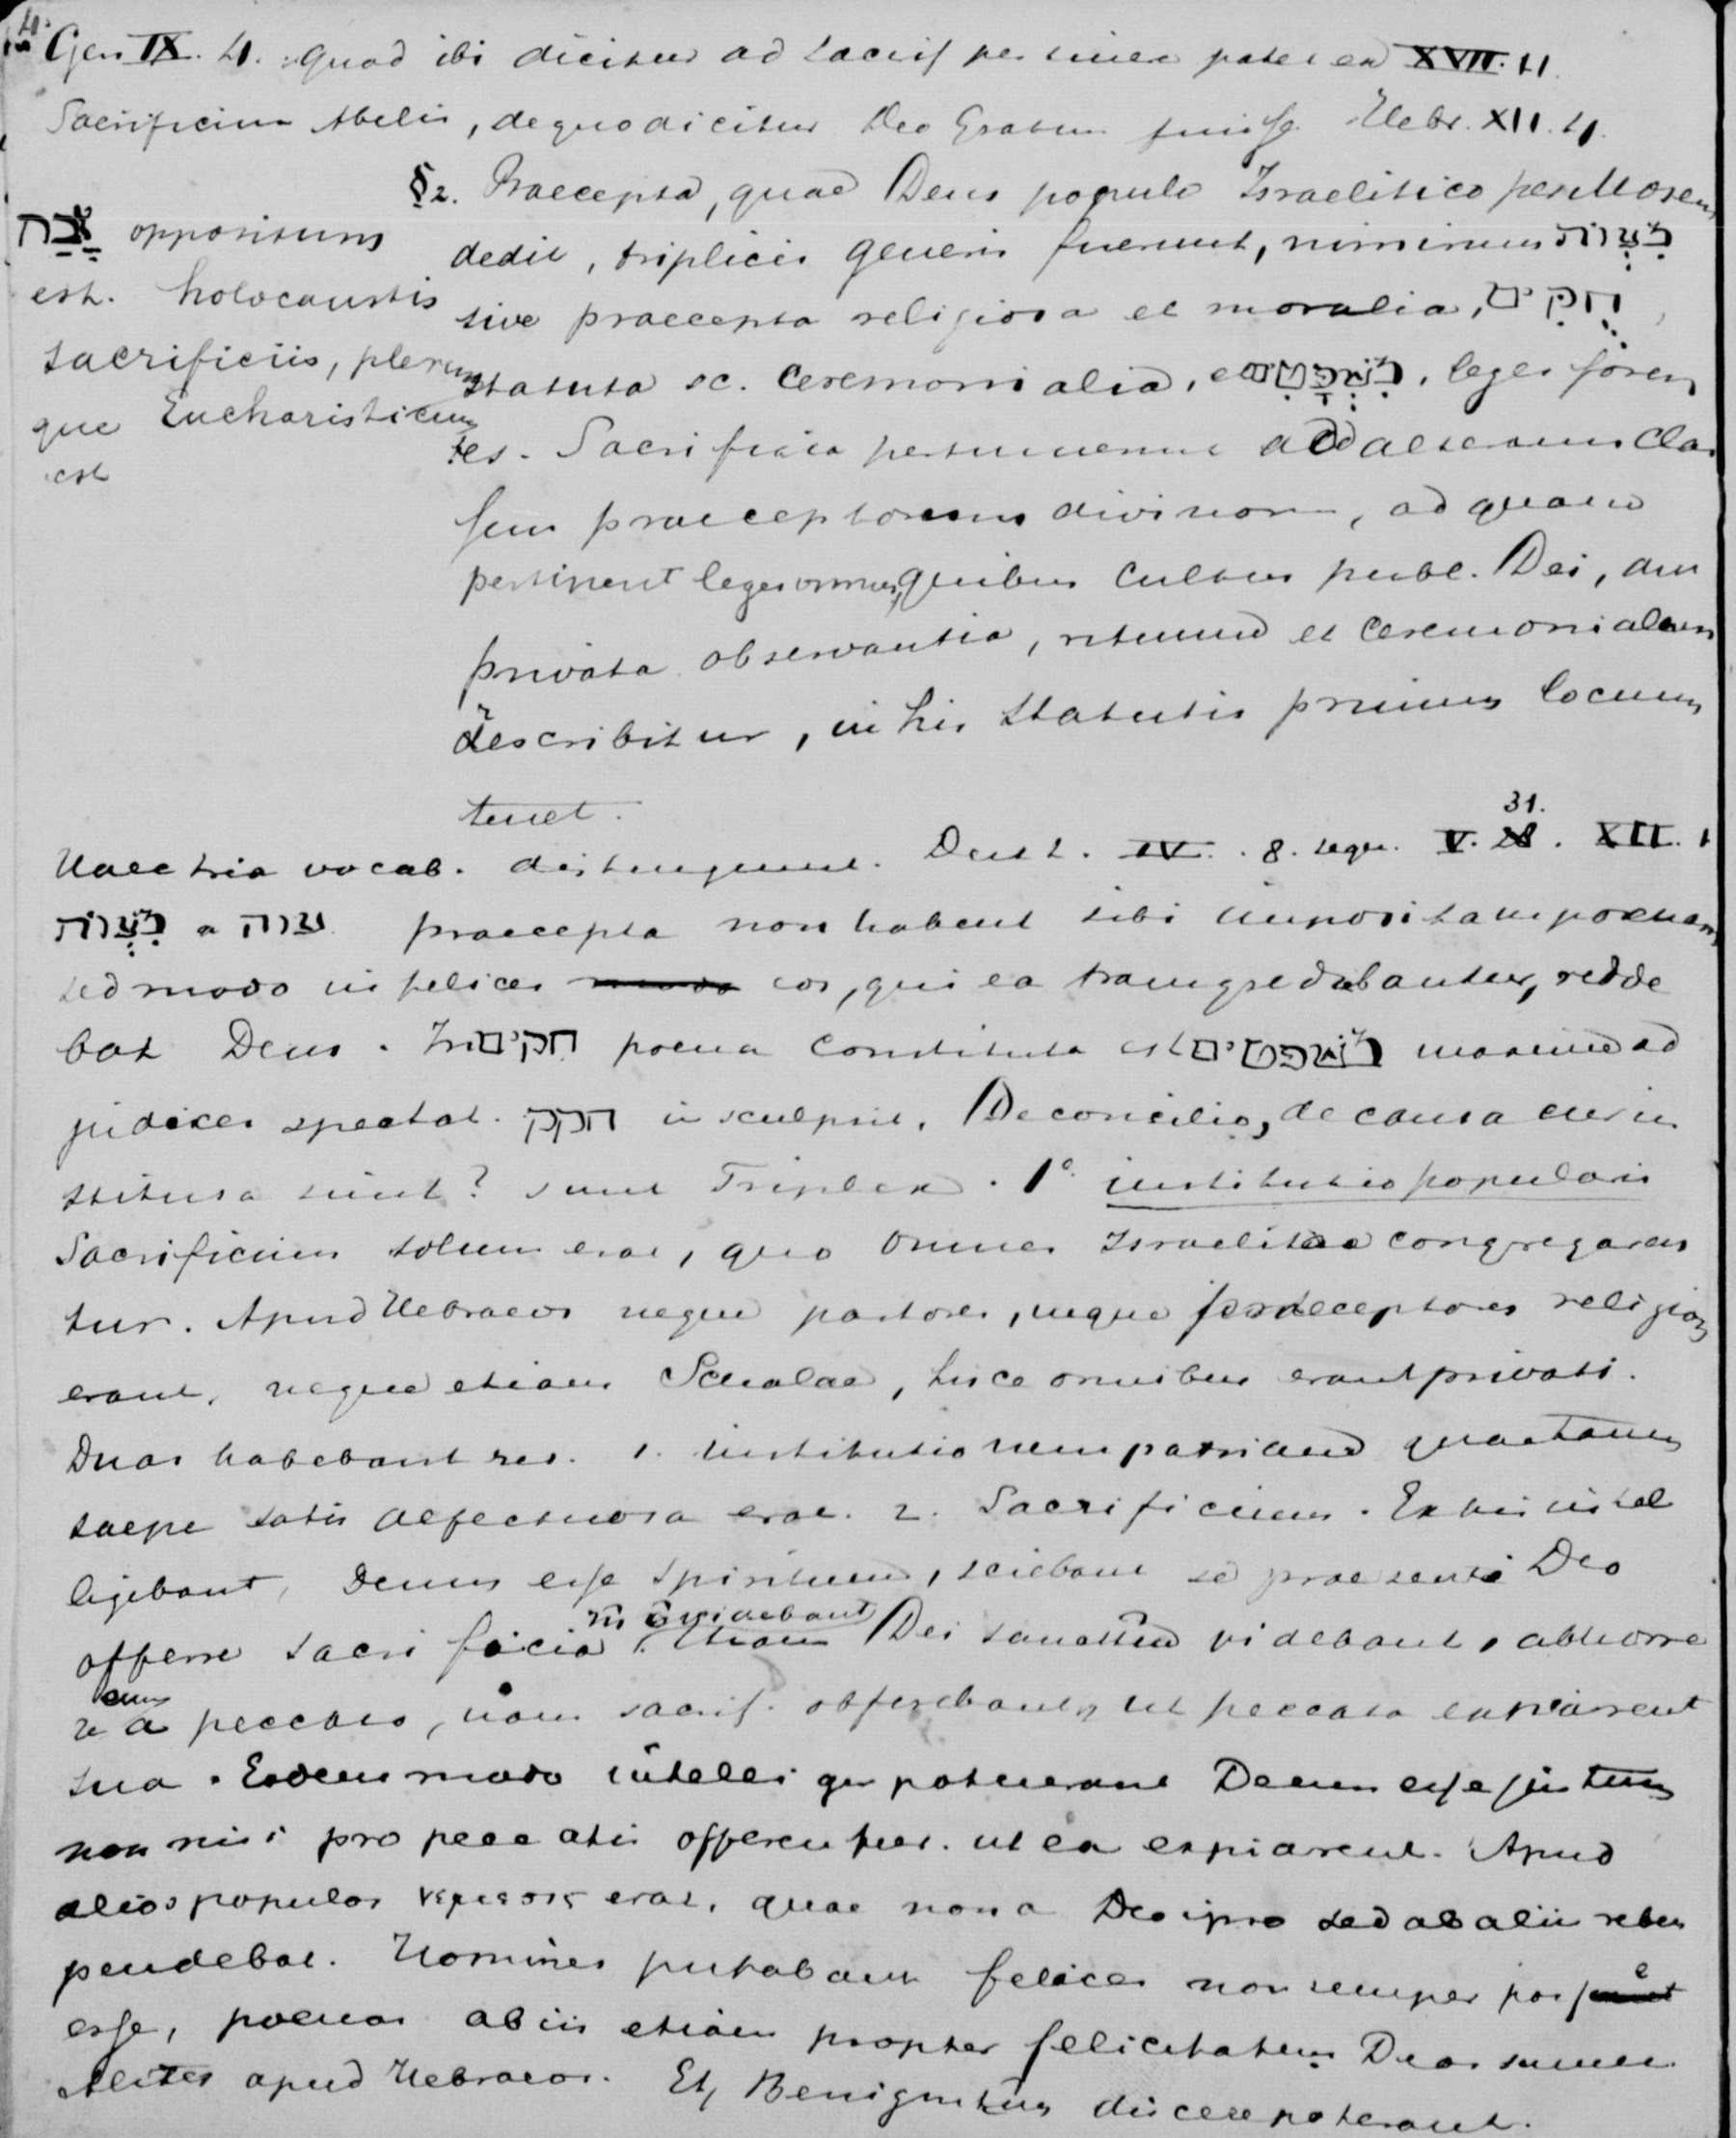 4.
Gen IX. 4. quod ibi dicitur ad sacrif pertinere patet ex XVII. 11.
Sacrificium Abelis, de quo dicitur Deo Gratum fuisse Hebr. XII. 4.
§2. Praecepta, quae Deus populo Israelitico per Mosem
dedit, triplicis generis fuerunt, nimirum מִצְוֹת
sive praecepta religiosa et moralia, חֻקִּים
statuta sc. ceremonialia, et מִשְׁפָּטִים, leges foren
ses. Sacrificia pertinuerunt ad alteram Clas
sem praeceptorum divinorum, ad quam
pertinent leges omnes, quibus Cultus publ. Dei, aut
privata observantia, rituum et Ceremonialium
describitur, in his statutis primum locum
tenet.
זֶבַח oppositum
est holocaustis
sacrificiis, plerum
que Eucharisticum
est
Haec tria vocab. distinguunt. Deut. IV. 8. seqq. V. 31. XII. 1
מִצְוֹת a צוה praecepta non habent sibi impositam poenam
sed modo infelices eos, qui ea transgrediebantur, redde
bat Deus. In חקים poena constituta est משפטים maxime ad
judices spectat. חקק insculpsit. De concilio, de causa cur in
stituta sint? sunt Triplex. 1° institutio popularis
Sacrificium solum erat, quo omnes Israelitae congregaren
tur. Apud Hebraeos neque pastores, neque praeceptores religion
erant, neque etiam Scholae, hisce omnibus erant privati.
Duas habebant res. 1. institutionem patriam quae tamen
saepe satis defectuosa erat. 2. Sacrificium. Ex his intel
ligebant, Deum esse Spiritum, sciebant se praesenti Deo
offerre sacrificia. Etiam Dei videbant, abhorre
re eum a peccato, nam sacrif. offerebant, ut peccata expiarent
sua. Eodem modo intelligi potuerant Deum esse justum
non nisi pro peccatis offerentes. ut ea expiarent. Apud
alios populos erat, quae non a Deo ipso sed ab aliis rebus
pendebat. Homines putabant felices non semper posse
esse, poenas ab iis etiam propter felicitatem Deos sumere
Aliter apud Hebraeos. Et Benignitatem discere poterant.